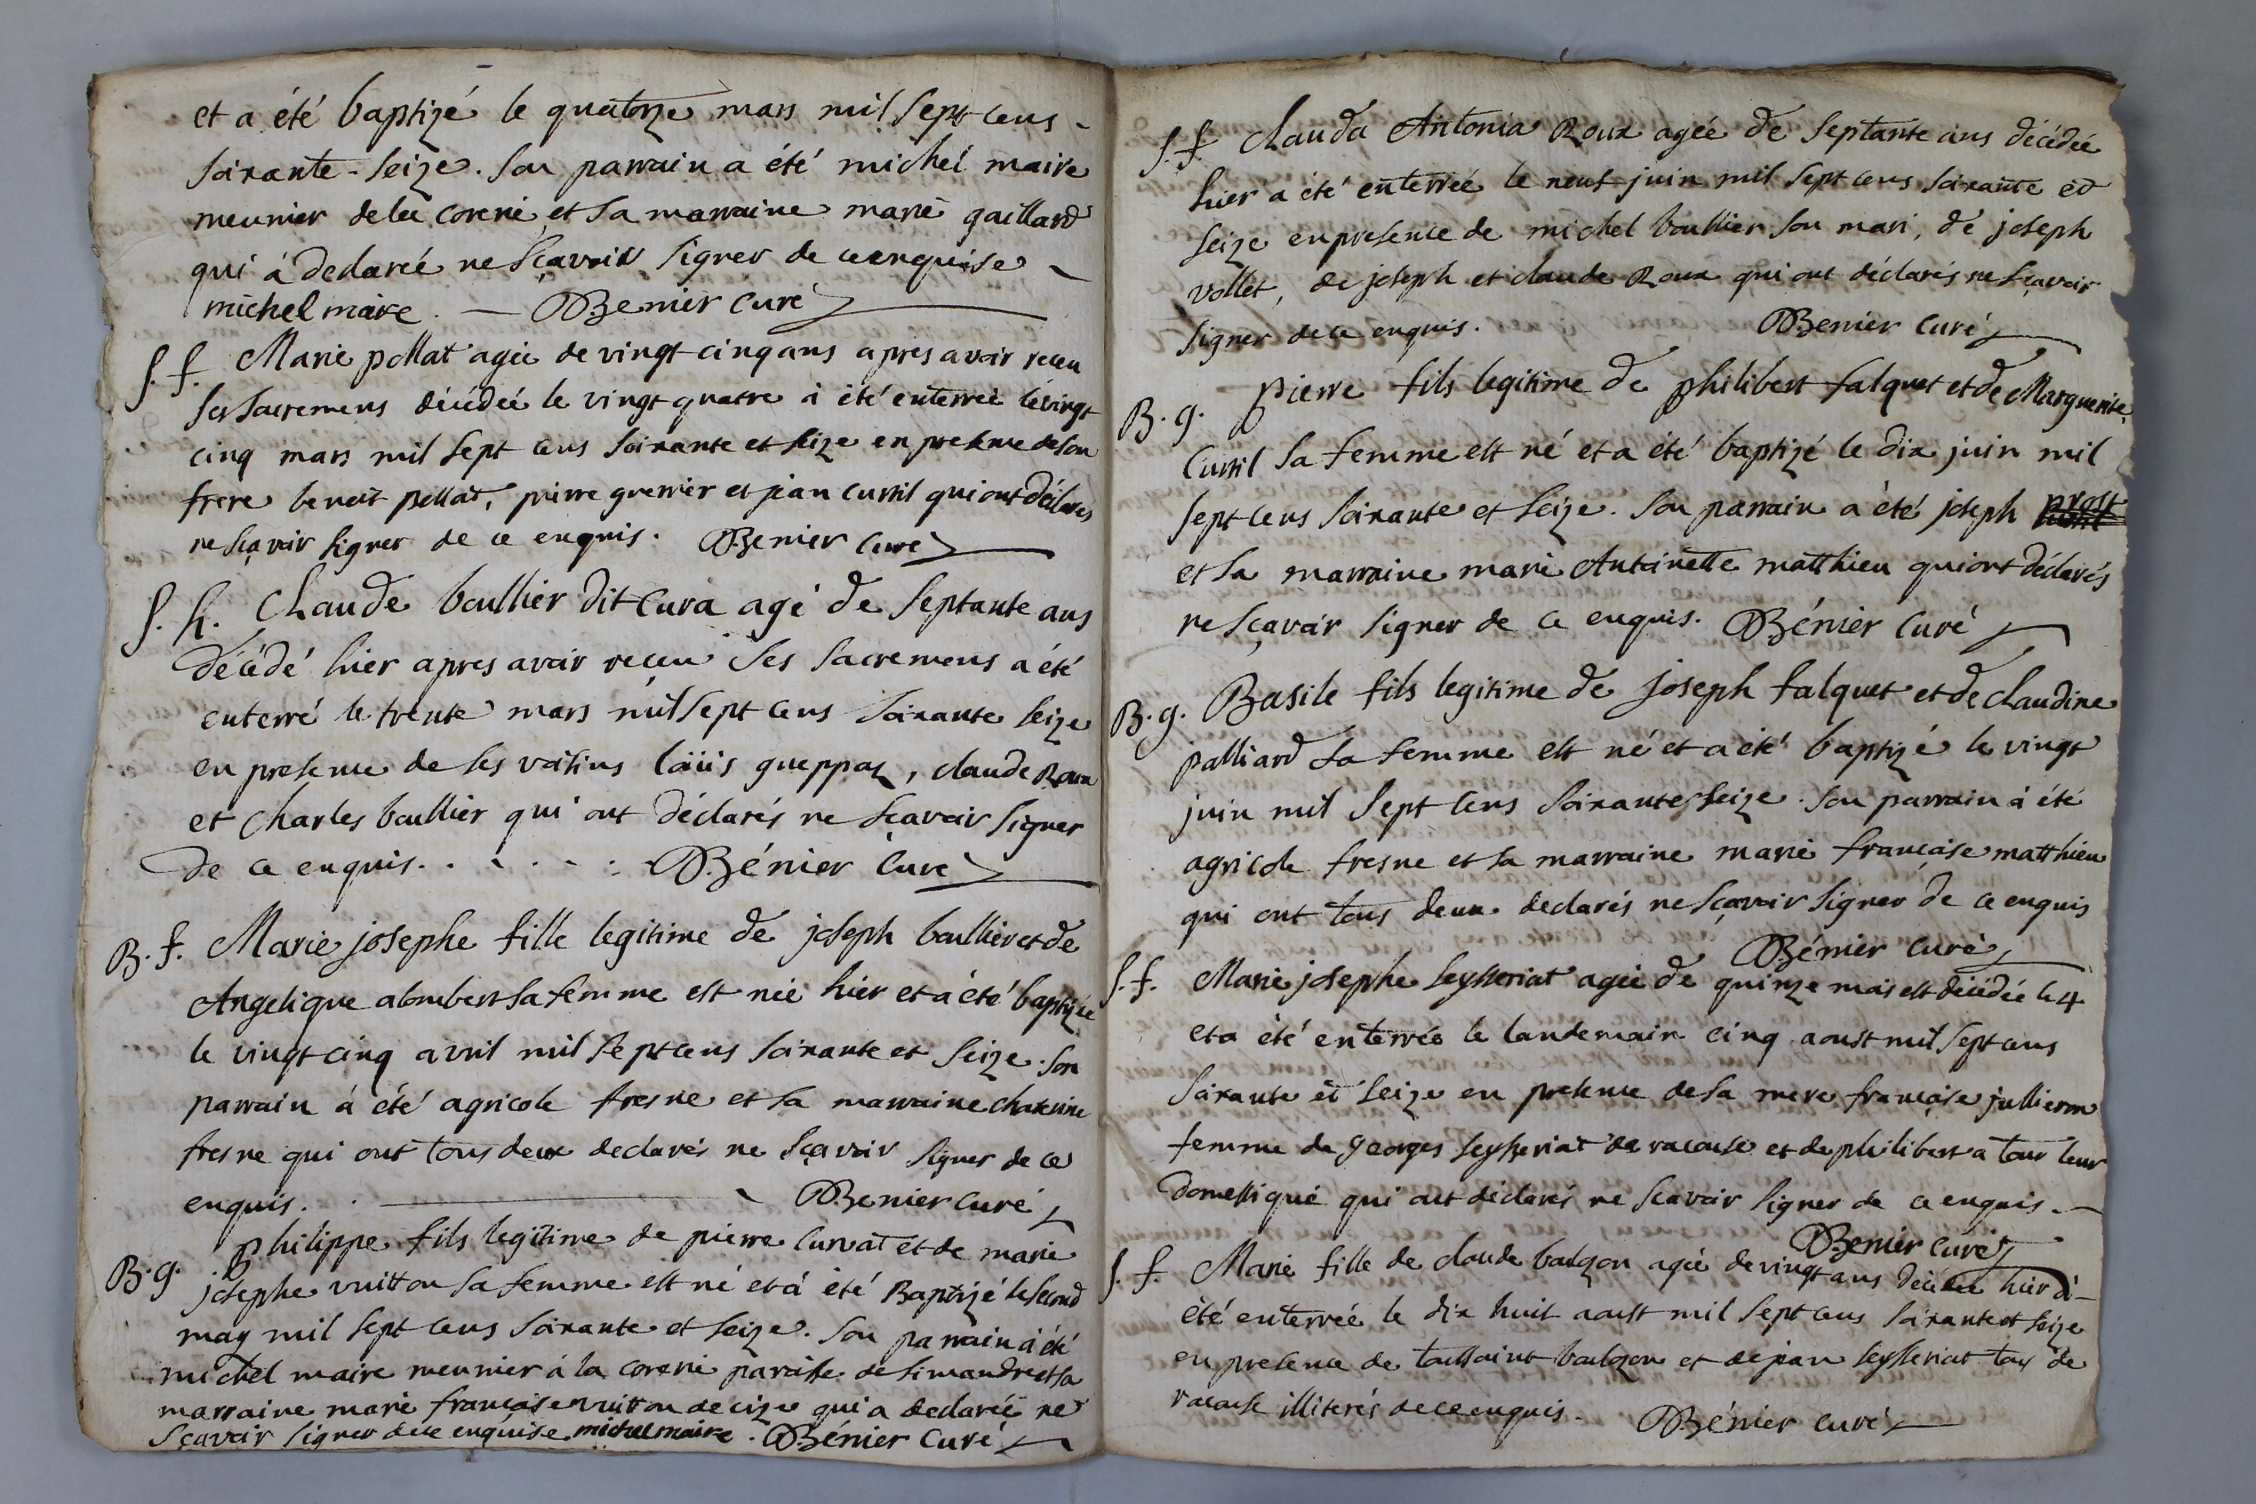 et a été baptizé le quatorze mars mil sept cens -
soixante - seize. son parrain a été michel maire
meunier de la corerie et sa marraine marie gaillard
qui à declarée ne sçavoir signer de ce enquise
michel maire. — Benier curé
S. f. Marie pellat agée de vingt cinq ans apres avoir receu
ses sacremens décédée le vingt quatre à été enterrée le vingt
cinq mars mil sept cens soixante et seize en presence de son
frere benoit pellat, pierre guerrier et jean curtil qui ont déclarés
ne sçavoir signer de ce enquis. Benier curé
S. h. Claude boullier dit cura agé de septante ans
décédé hier apres avoir reçeu ses sacremens a été
enterré le trente mars mil sept cens soixante seize
en presence de ses voisins loüis gueppaz, claude Roux
et charles boullier qui ont déclarés ne sçavoir signer
de ce enquis. . . . . . Bénier curé
B. f. Marie josephe fille legitime de joseph boullier et de
Angelique alombert sa femme est née hier et a été baptizée
le vingt cinq avril mil sept cens soixante et seize. son
parrain à été agricole fresne et sa marraine chaterine
fresne qui ont tous deux declarés ne sçavoir signer de ce
enquis. Benier curé
B. g. philippe fils legitime de pierre curvat et de marie
josephe vuitton sa femme est né et à été Baptizé le second
may mil sept cens soixante et seize. son parrain à été
michel maire meunier à la corerie paroisse de simandre et sa
marraine marie françoise vuitton de cize qui a declarée ne
sçavoir signer de ce enquise michel maire. Bénier curé
S. f. Clauda Antonia Roux agée de septante ans décédée
hier a été enterrée le neuf juin mil sept cens soixante et
seize en presence de michel boullier son mari, de joseph
vollet, de joseph et claude Roux qui ont déclarés ne sçavoir
signer de ce enquis. Benier curé
B. g. pierre fils legitime de philibert falquet et de Marguerite
Curtil sa femme est né et a été baptizé le dix juin mil
sept cens soixante et seize. son parrain a été joseph prost
et sa marraine marie Antoinette matthieu qui ont déclarés
ne sçavoir signer de ce enquis. Bénier curé
B. g. Basile fils legitime de joseph falquet et de claudine
palliard sa femme est né et a été baptizé le vingt
juin mil sept cens soixante seize. son parrain à été
agricole fresne et sa marraine marie françoise matthieu
qui ont tous deux declarés ne sçavoir signer de ce enquis
Bénier curé
S. f. Marie josephe seysseriat agée de quinze mois est décédée le 4
et a été enterrée le landemain cinq aoust mil sept cens
soixante et seize en presence de sa mere françoise jullieron
femme de georges seysseriat de racouse et de philibert a tour leur
domestique qui ont déclarés ne sçavoir signer de ce enquis. —
Benier curé
S. f. Marie fille de claude balzon agée de vingt ans décédée hier à
été enterrée le dix huit aoust mil sept cens soixante et seize
en presence de toussaint balzon et de jean seysseriat tous de
racouse illiterés de ce enquis. Bénier curé